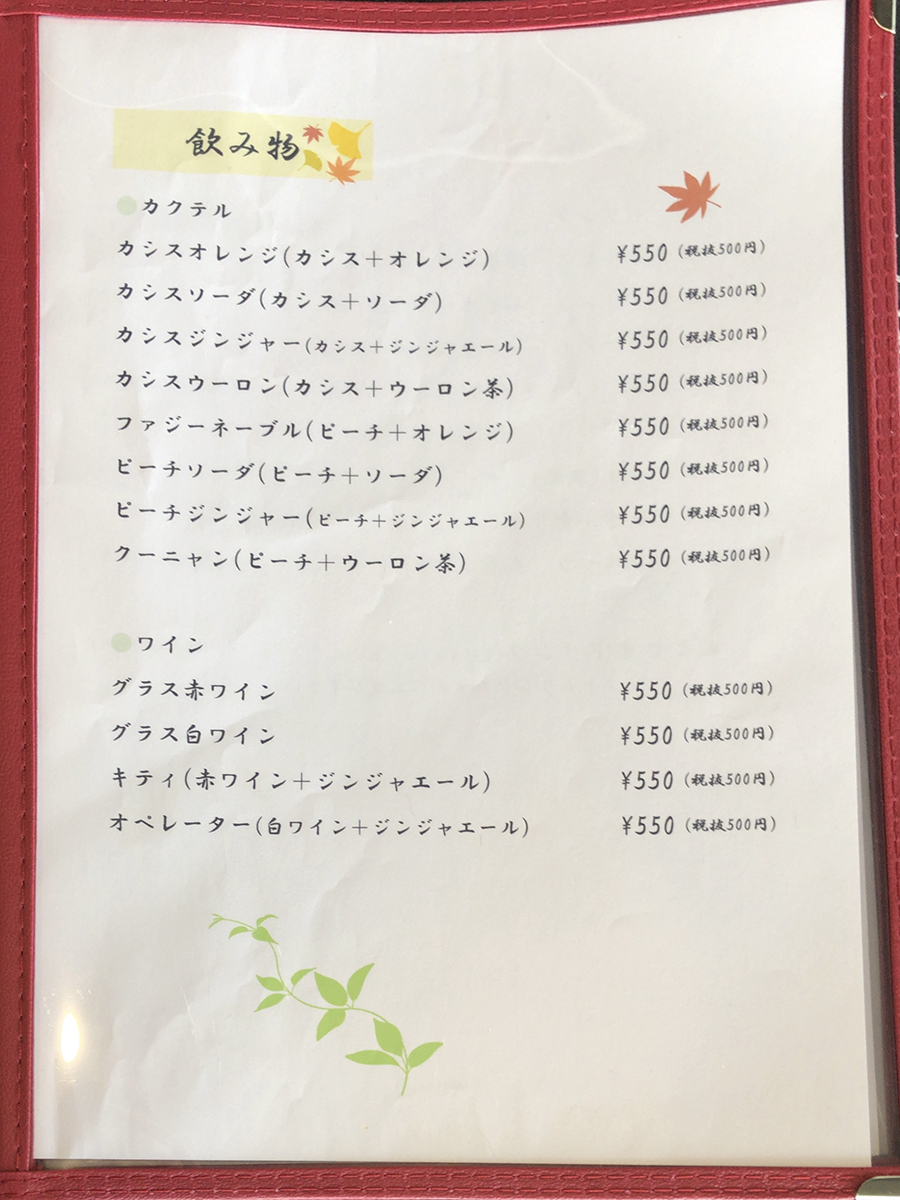 飲み物
カクテル
カシスオレンジ(カシス＋オレンジ) ¥550 (税抜500円)
カシスソーダ(カシス＋ソーダ) ¥550 (税抜500円)
カシスジンジャー(カシス＋ジンジャエール) ¥550 (税抜500円)
カシスウーロン(カシス＋ウーロン茶) ¥550 (税抜500円)
ファジーネーブル(ピーチ＋オレンジ) ¥550 (税抜500円)
ピーチソーダ(ピーチ＋ソーダ) ¥550 (税抜500円)
ピーチジンジャー(ピーチ＋ジンジャエール) ¥550 (税抜500円)
クーニャン(ピーチ＋ウーロン茶) ¥550 (税抜500円)
ワイン
グラス赤ワイン ¥550 (税抜500円)
グラス白ワイン ¥550 (税抜500円)
キティ(赤ワイン＋ジンジャエール) ¥550 (税抜500円)
オペレーター(白ワイン＋ジンジャエール) ¥550 (税抜500円)